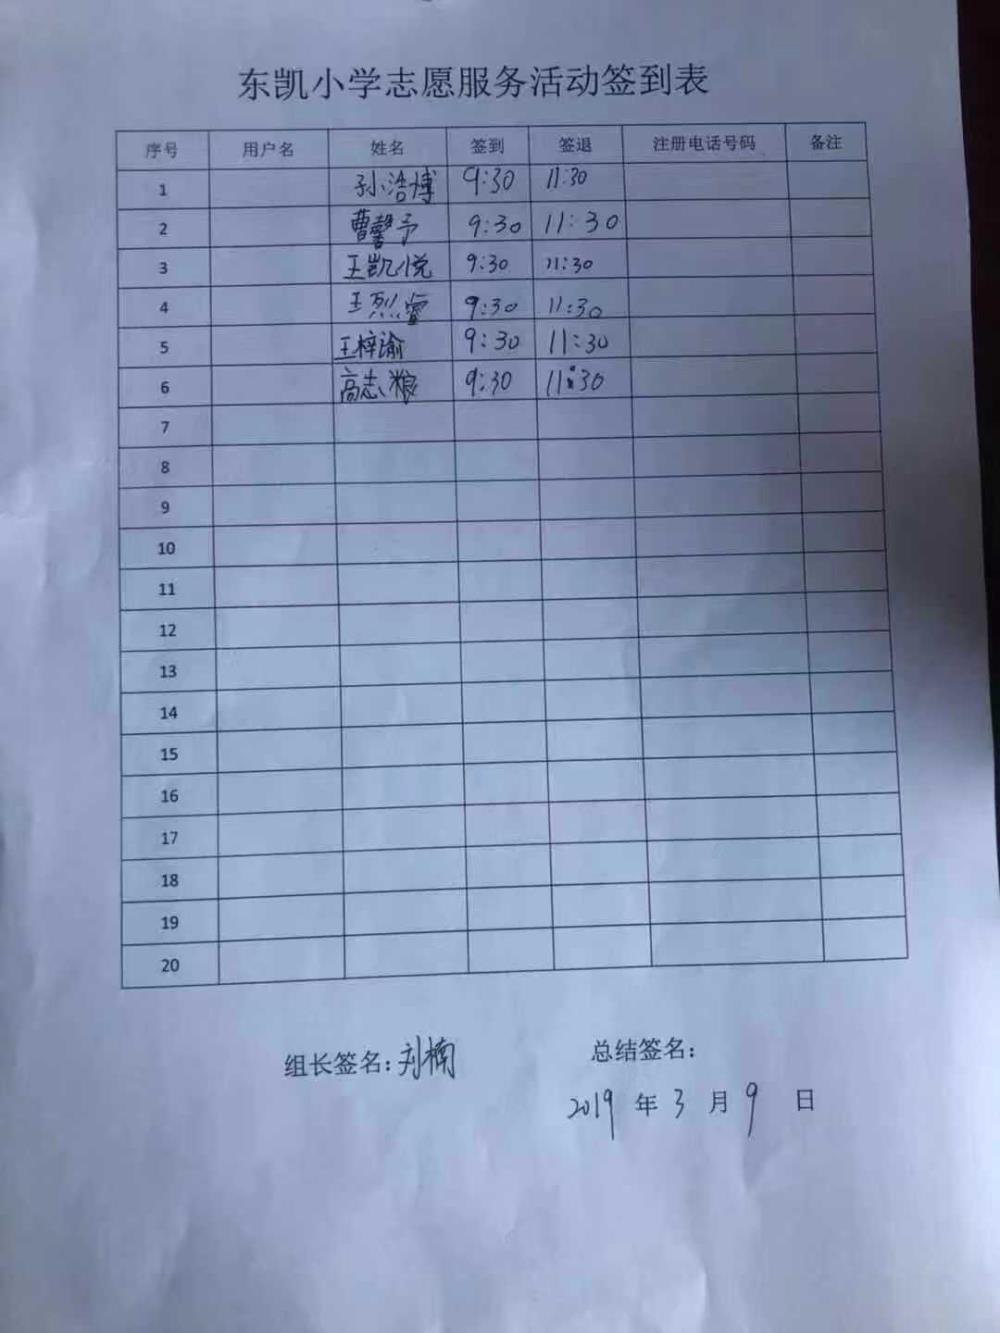 东凯小学志愿服务活动签到表
序号 用户名 姓名 签到 签退 注册电话号码 备注
1 孙浩博 9:30 11:30
2 曹馨予 9:30 11:30
3 王凯悦 9:30 11:30
4 王烈睿 9:30 11:30
5 王梓谕 9:30 11:30
6 高志粮 9:30 11:30
7
8
9
10
11
12
13
14
15
16
17
18
19
20
组长签名:刘楠 总结签名:
2019 年 3 月 9 日